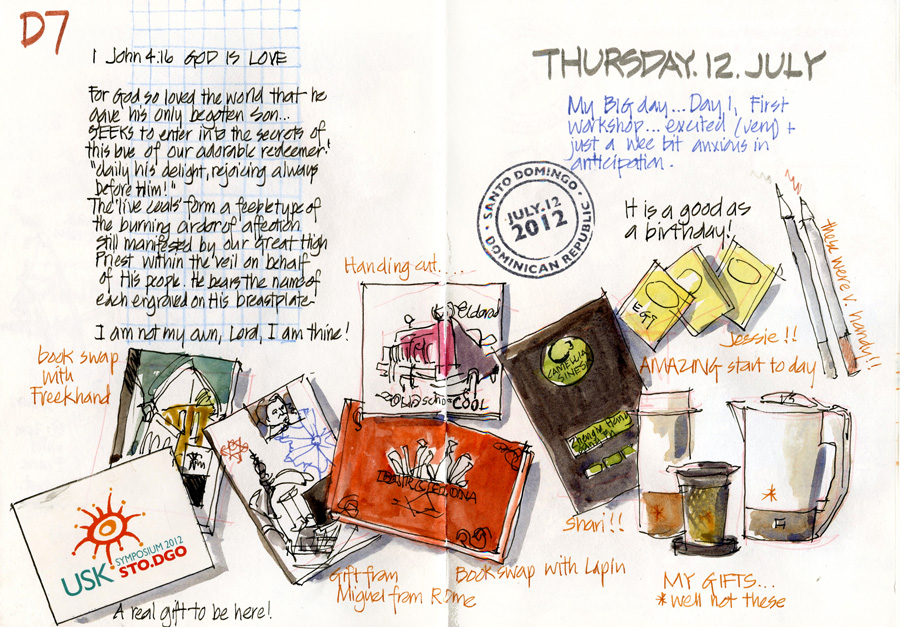 D7
1 John 4:16 GOD IS LOVE
For God so loved the world that he
gave his only begotten Son...
SEEKS to enter into the secrets of
this love of our adorable redeemer.
"daily his delight, rejoicing always
before Him!"
The 'live coals' form a feeble type of
the burning ardor of affection
still manifested by our great High
Priest within the veil on behalf
of His people. He bears the name of
each engraved on His breastplate
I am not my own, Lord, I am thine!
THURSDAY.12.JULY
My BIG day... Day 1, First
workshop... excited (very) +
just a wee bit anxious in
anticipation.
SANTO DOMINGO
JULY.12
2012
DOMINICAN REPUBLIC
It is a good as
a birthday!
these were v. handy!!
EGT
Jessie!!
AMAZING start to day
Handing out.....
Eldorado
COOL
book swap
with
Freekhand
CAMELLIA
SINESIS
Shari!!
USK
SYMPOSIUM 2012
STO.DGO
A real gift to be here!
Gift from
Miguel from Rome
Book swap with Lapin
MY GIFTS...
* well not these